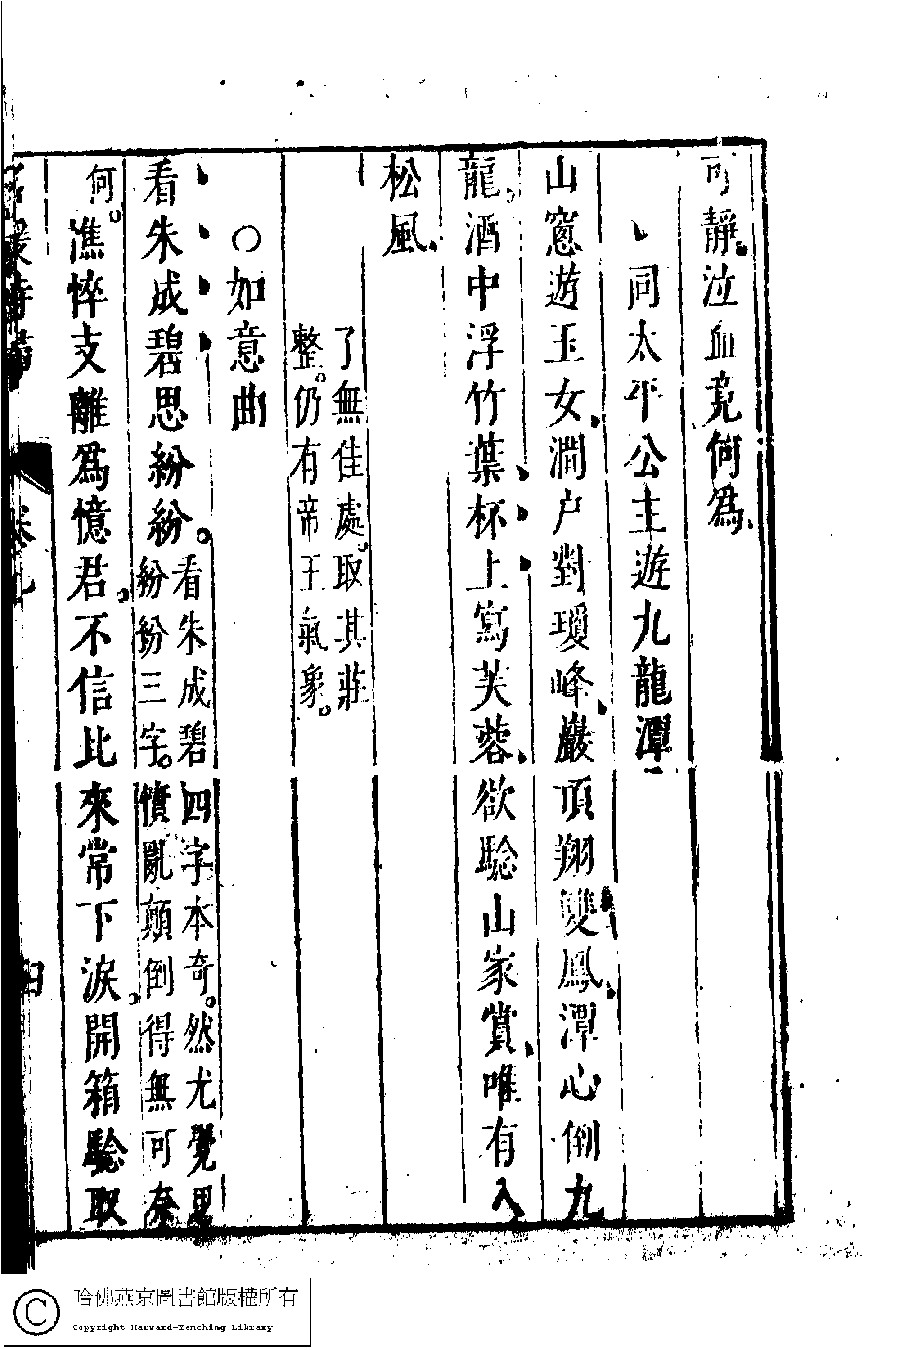 可靜。泣血竟何爲、
同太平公主遊九龍潭
山窻遊玉女、澗户對瓊峰、巖頂翔雙鳳、潭心倒九
龍。酒中浮竹葉、杯上寫芙蓉、欲騐山家賞、唯有入
松風、
了無佳處。取其莊
整。仍有帝王氣象。
○如意曲
看朱成碧思紛紛。看朱成碧四字本奇。然尤覺思
紛紛三字。憒亂顛倒得無可奈
何。憔悴支離爲憶君。不信比來常下淚。開箱騐取
名媛詩歸
卷九
四
哈佛燕京圖書館版權所有
Copyright Harvard-Yenching Library